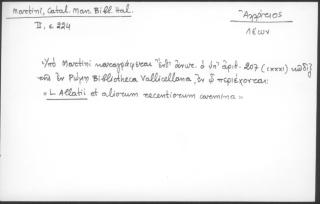 Martini, Catal. Man. Bibl Ital.
II, c 224
Ἀλλάτιος
Λέων
Ὑπὸ Martini καταγράφεται ὁ ὑπ' ἀριθ. 207 (CXXXI) κῶδιξ
τῆς ἐν Ρώμῃ Bibliotheca Vallicellana, ἐν ᾧ περιέχονται:
« L. Allatii et aliorum recentiorum carmina »